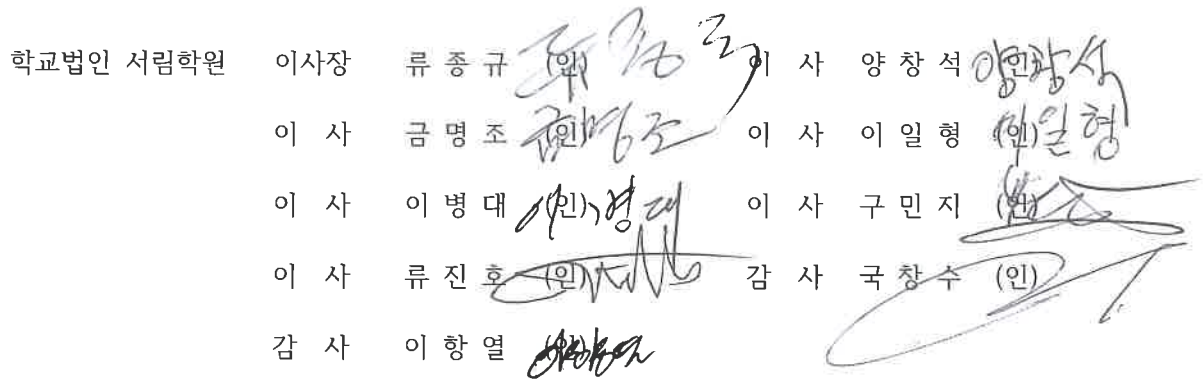 학교법인 서림학원 이사장 류종규 (인) 이 사 양창석 (인) 양창석
이 사 금명조 (인) 금명조 이 사 이일형 (인) 이일형
이 사 이병대 (인) 이병대 이 사 구민지 (인)
이 사 류진호 (인) 감 사 국창수 (인)
감 사 이항열 (인)